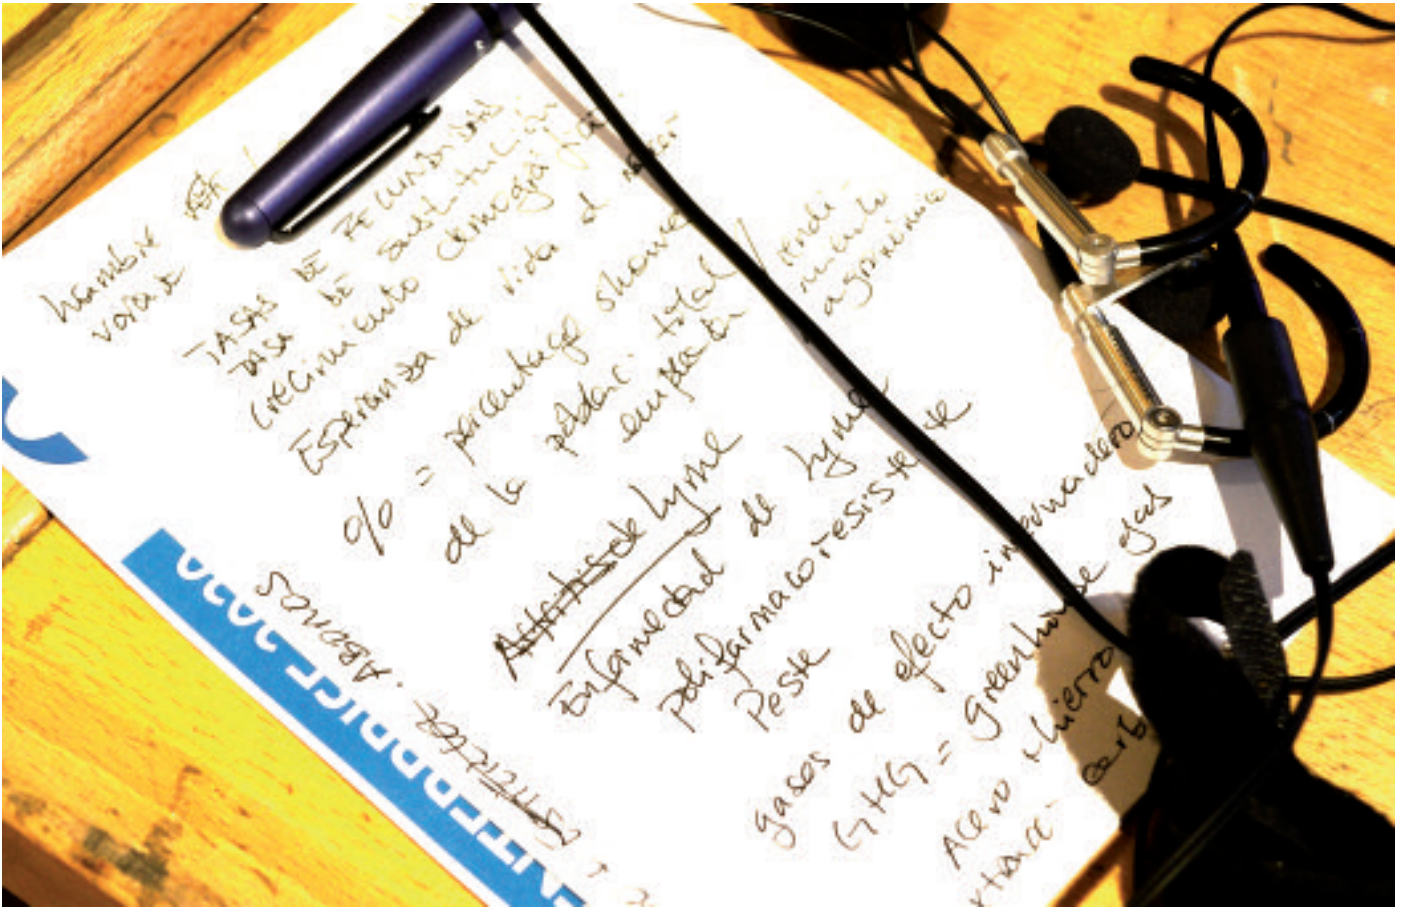 hambre
TASAS DE FECUNDIDAD
TASA DE sustitución
Crecimiento demográfico
Esperanza de vida al nacer
% = percentage share
de la poblac. total
rendi
miento
agronómico
Artritis de Lyme
Enfermedad de Lyme
polifarmacoresiste te
Peste
gases de efecto invernadero
GHG = greenhouse gas
Acero + hierro
carb
ESTIERCOL. ABONOS